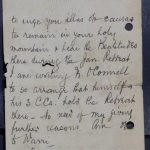 to urge you
to remain in your holy
mountain & hear the Beatitudes
there during the Jan. Retreat
I am writing Fr O'Connell
to so arrange that himself &
his 3 C.Cs. hold the Retreat
there — no need of my giving
further reasons.